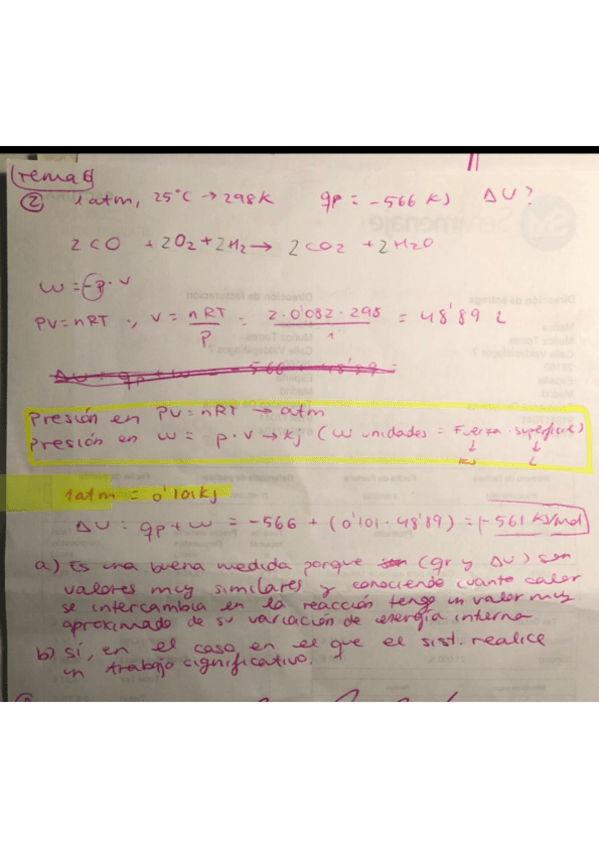 (tema 6)
② 1 atm, 25°C → 298 K qp = -566 KJ ΔU?
2 CO + 2O2 + 2H2 → 2 CO2 + 2H2O
W = -P · V
PV = nRT ·, V = nRT / P = 2 · 0'082 · 298 / 1 = 48'89 L
ΔU = qp + W = -566 + 48'89 =
Presión en PV = nRT → atm
Presión en W = P · V → KJ (W unidades = Fuerza · superficie)
↓ ↓
KJ L
1 atm = 0'101 KJ
ΔU = qp + W = -566 + (0'101 · 48'89) = -561 KJ/mol
a) Es una buena medida porque (qr y ΔU) son
valores muy similares y conociendo cuanto calor
se intercambia en la reacción tengo un valor muy
aproximado de su variación de energía interna
b) sí, en el caso en el que el sist. realice
un trabajo significativo.